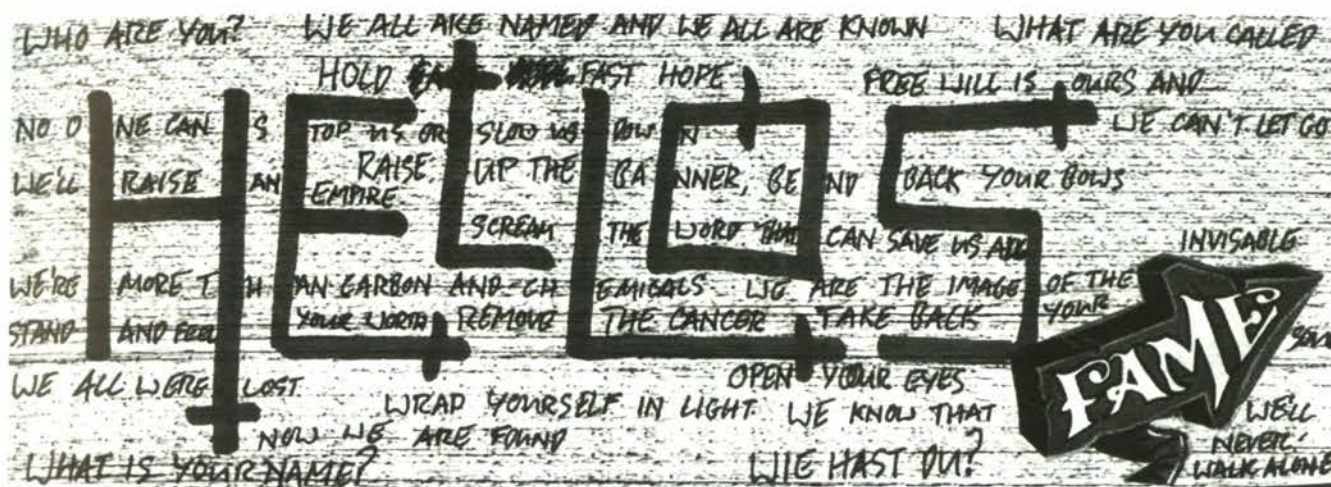 WHO ARE YOU? WE ALL ARE NAMED AND WE ALL ARE KNOWN WHAT ARE YOU CALLED
HOLD FAST HOPE FREE WILL IS OURS AND
HELLOS
NO ONE CAN STOP US OR SLOW US DOWN WE CAN'T LET GO
WE'LL RAISE AN EMPIRE RAISE UP THE BANNER, BEND BACK YOUR BOWS
SCREAM THE WORD THAT CAN SAVE US ALL INVISABLE
WE'RE MORE THAN CARBON AND CHEMICALS WE ARE THE IMAGE OF THE
STAND AND FEEL YOUR WORTH REMOVE THE CANCER TAKE BACK YOUR
FAME
WE ALL WERE LOST OPEN YOUR EYES
WRAP YOURSELF IN LIGHT WE KNOW THAT WE'LL
NOW WE ARE FOUND NEVER
WHAT IS YOUR NAME? WIE HAST DU? WALK ALONE